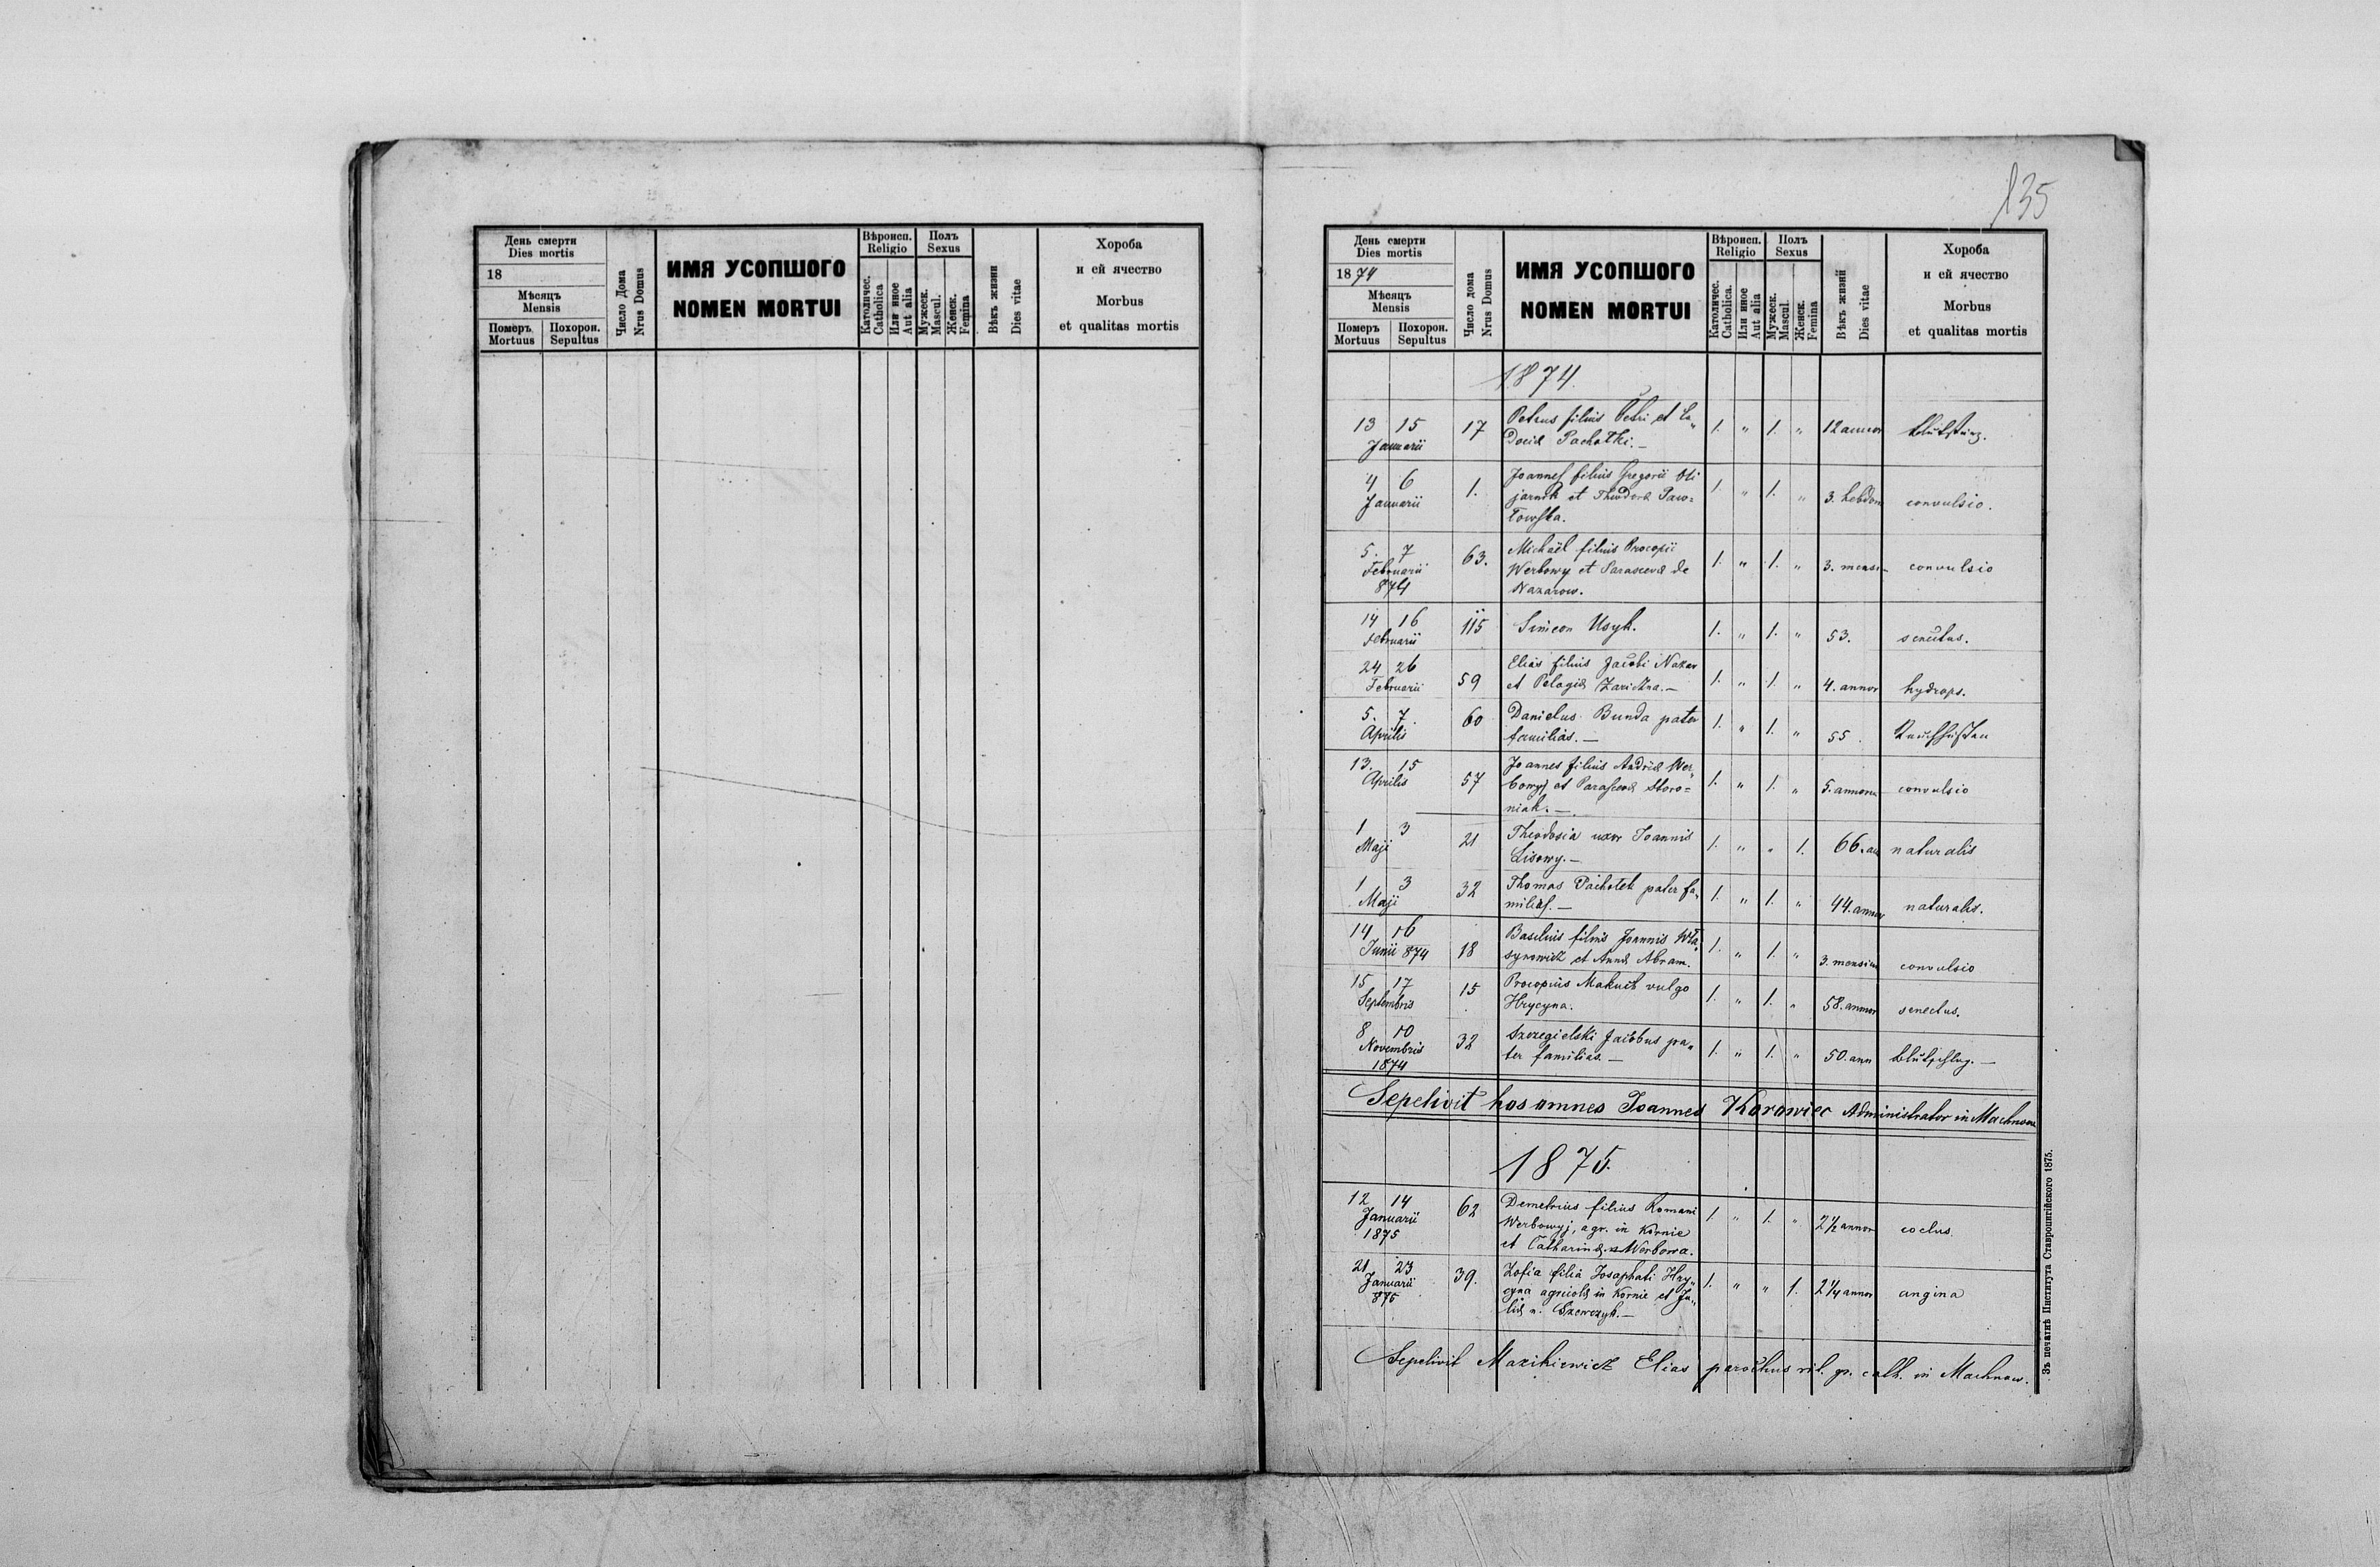 День смерти
Dies mortis
18
Мѣсяцъ
Mensis
Померъ Похорон.
Mortuus Sepultus
Число Дома
Nrus Domus
ИМЯ УСОПШОГО
NOMEN MORTUI
Вѣроисп.
Religio
Католичес.
Catholica
Или иное
Aut alia
Полъ
Sexus
Мужеск.
Mascul.
Женск.
Femina
Вѣкъ жизни
Dies vitae
Хороба
и ей ячество
Morbus
et qualitas mortis
135
День смерти
Dies mortis
1874
Мѣсяцъ
Mensis
Померъ Похорон.
Mortuus Sepultus
Число дома
Nrus Domus
ИМЯ УСОПШОГО
NOMEN MORTUI
Вѣроисп.
Religio
Католичес.
Catholica.
Или иное
Aut alia
Полъ
Sexus
Мужеск.
Mascul.
Женск.
Femina
Вѣкъ жизнй
Dies vitae
Хороба
и ей ячество
Morbus
et qualitas mortis
1874.
13 15 17 Petrus filius Petri et Eu„ 1. „ 1. „ 12 annor
Januarii dociæ Pachotki.—
4 6 1. Joannes filius Gregorii Oli 1. „ 1. „ 3. hebdom convulsio.
Januarii jarnik et Theodoræ Paw=
łowska.
5. 7 63. Michaël filius Procopii 1. „ 1. „ 3. mens. convulsio
Februarii Werbowy et Parascevæ de
874 Nazarow.
14 16 115 Simeon Usyk. 1. „ 1. „ 53. senectus.
Februarii
24 26 59 Elias filius Jacobi Nazar 1. „ 1. „ 4. annor hydrops.
Februarii et Pelagiæ Zariczna.—
5. 7. 60 Danielus Bunda pater 1. „ 1. „ 55.
Aprilis familias.—
13. 15 57 Joannes filius Andreæ Wer„ 1. „ 1. „ 5. annorum convulsio
Aprilis bowyj et Parascevæ Storo=
niak.—
1 3 21 Theodosia uxor Joannis 1. „ „ 1. 66. an naturalis
Maji Lisowy.—
1 3 32 Thomas Pachotek pater fa„ 1. „ 1. „ 44. annor naturalis.
Maji milias.—
14 16 18 Basilius filius Joannis Wła„ 1. „ 1. „ 3. mensium convulsio
Junii 874 synowicz et Annæ Abram.
15 17 15 Procopius Makuch vulgo 1. „ 1. „ 58. annor senectus.
Septembris Hrycyna.
8 10 32 Szczegielski Jacobus pa„ 1. „ 1. „ 50. ann
Novembris ter familias.—
1874
Sepelivit hos omnes Joannes Korowiec Administrator in Machnow
1875.
12 14 62 Demetrius filius Romani 1. „ 1. „ 2½ annor
Januarii Werbowyj, agr. in Kornie
1875 et Catharinæ Werbowa.
21 23 39. Zofia filia Josaphati Hry„ 1. „ „ 1. 2¼ annor angina
Januarii cyna agricolæ in Kornie et Ju„
875 liæ n. Szewczyk.—
Sepelivit Mazikiewicz Elias parochus rit. gr. cath. in Machnow.
Зъ печатнѣ Института Ставропигійского 1875.